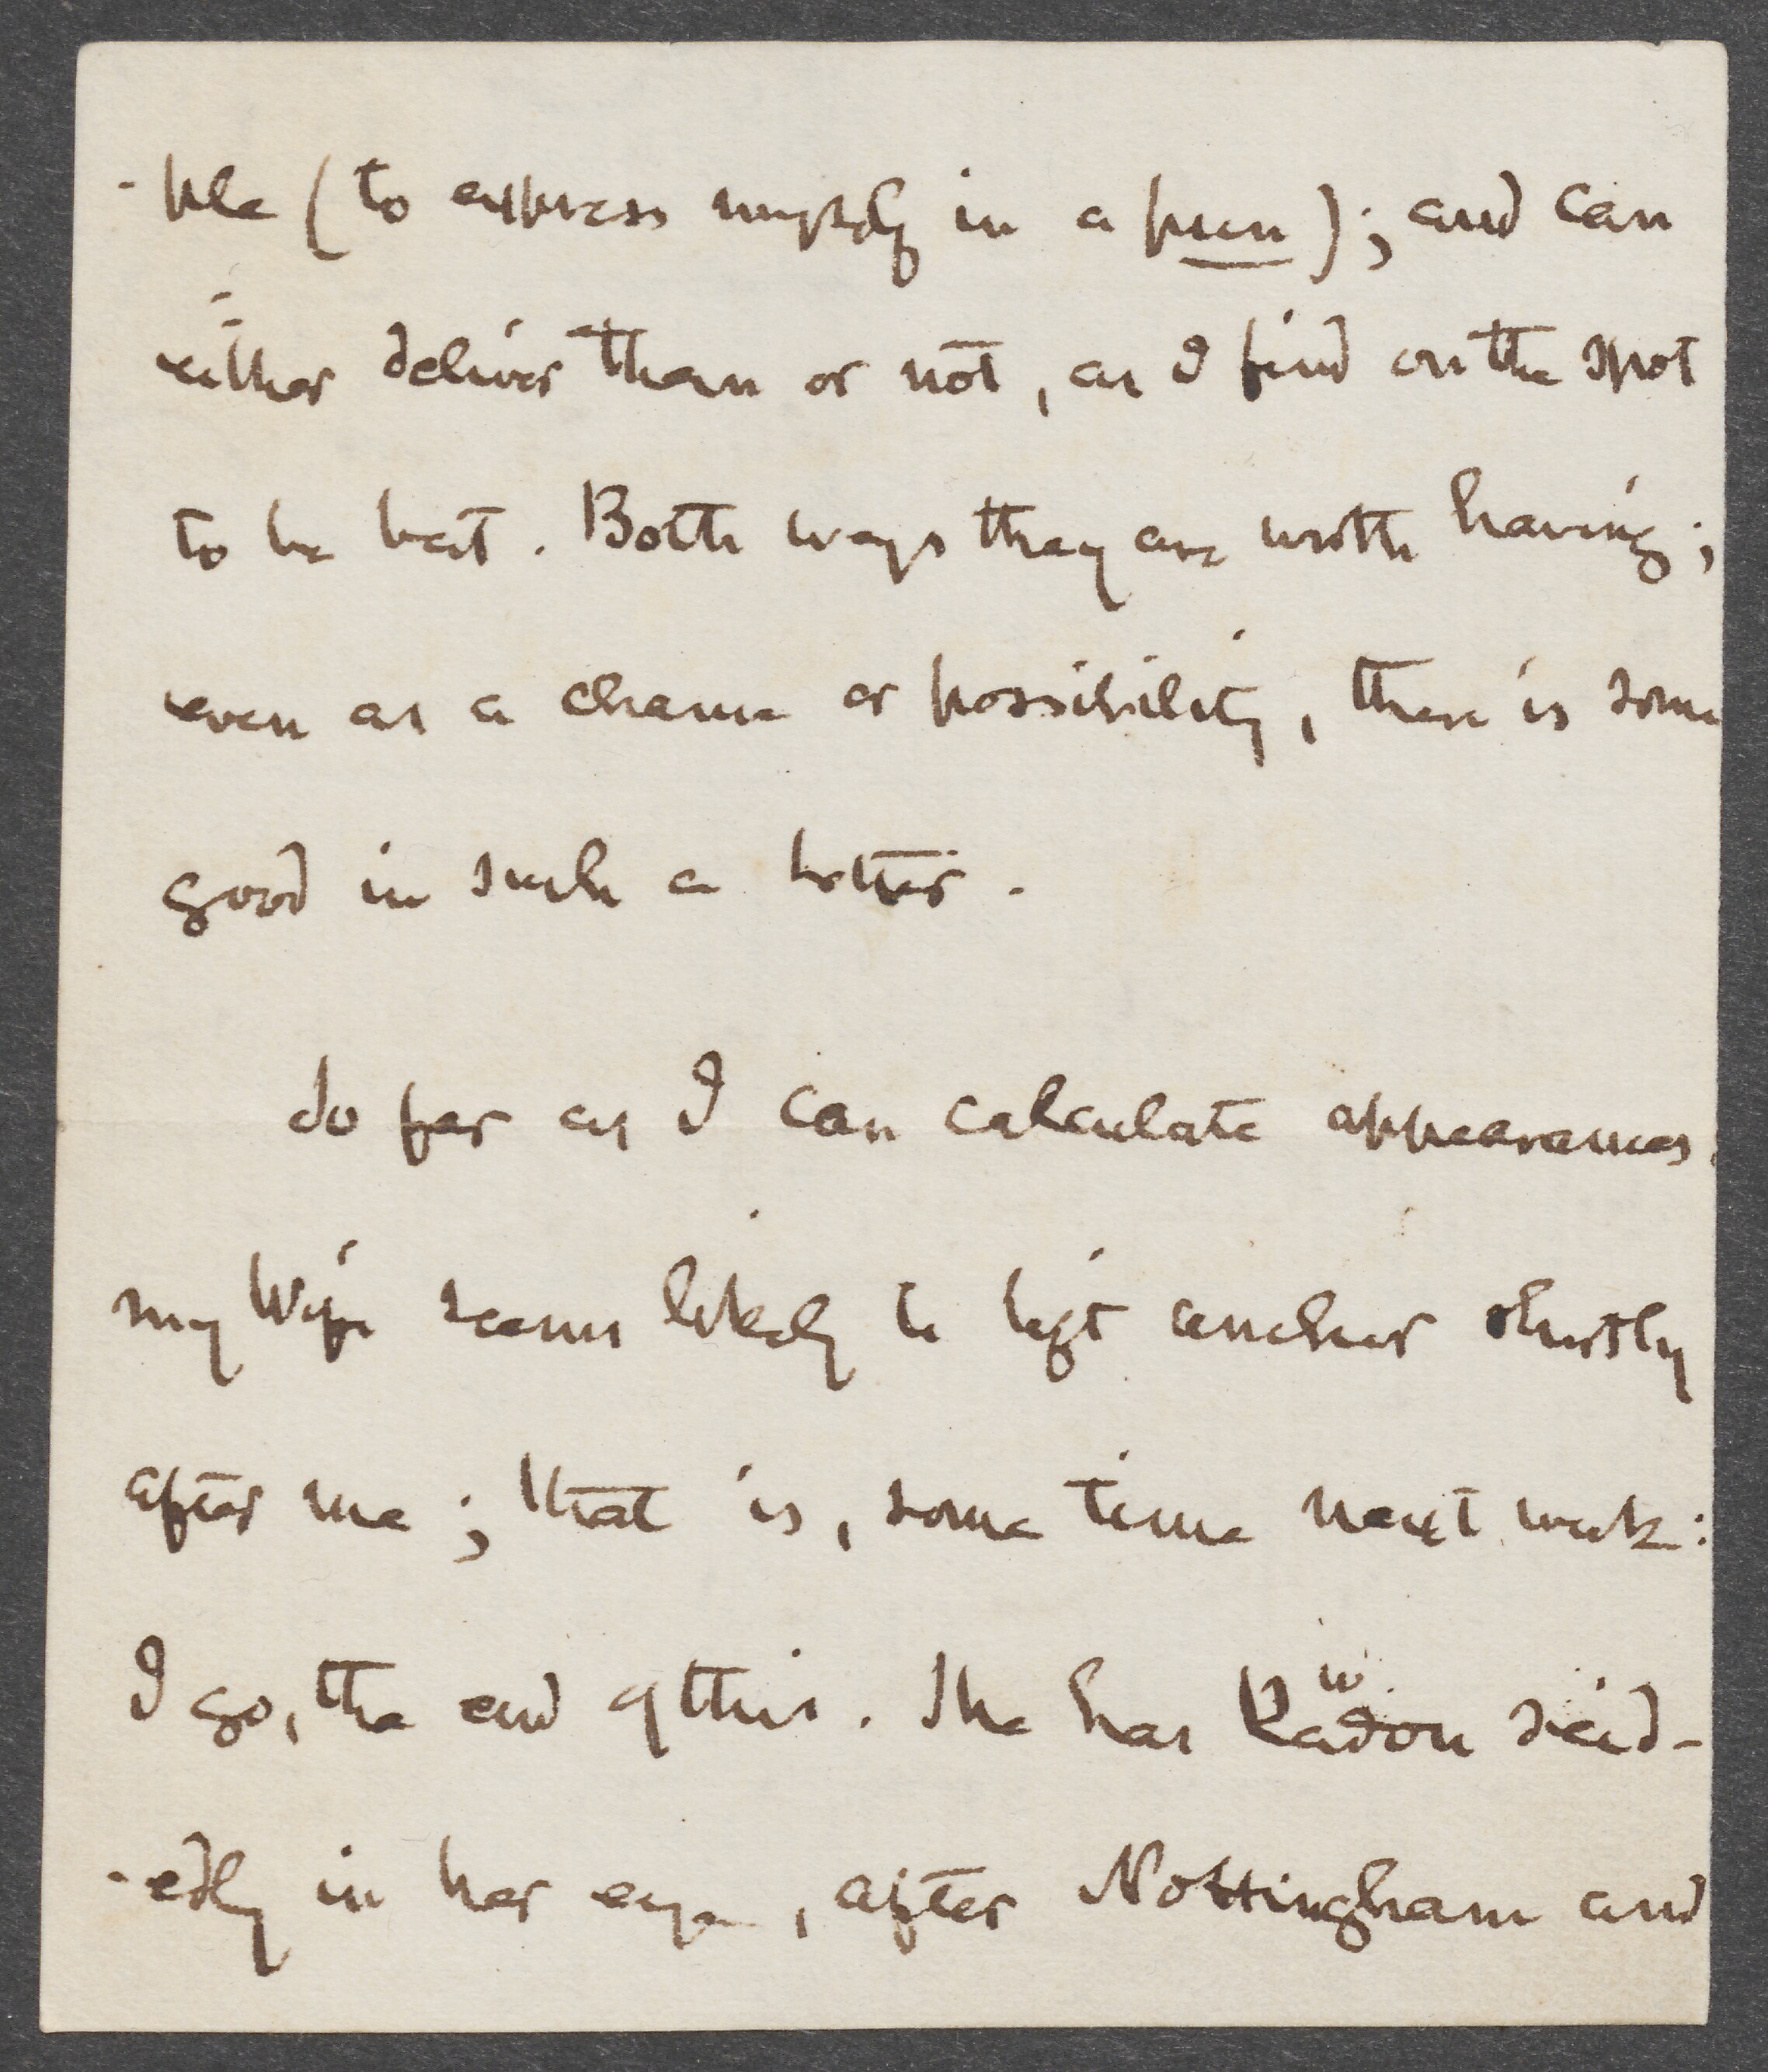 -ple (to express myself in a pun); and can
either deliver them or not, as I find on the spot
to be best. Both ways they are worth having;
even as a chance or possibility, there is some
good in such a letter.
So far as I can calculate appearances,
my Wife seems likely to lift anchor shortly
after me; that is, some time next week:
I go, the end of this. She has Rawdon decid-
-edly in her eye, after Nottingham and